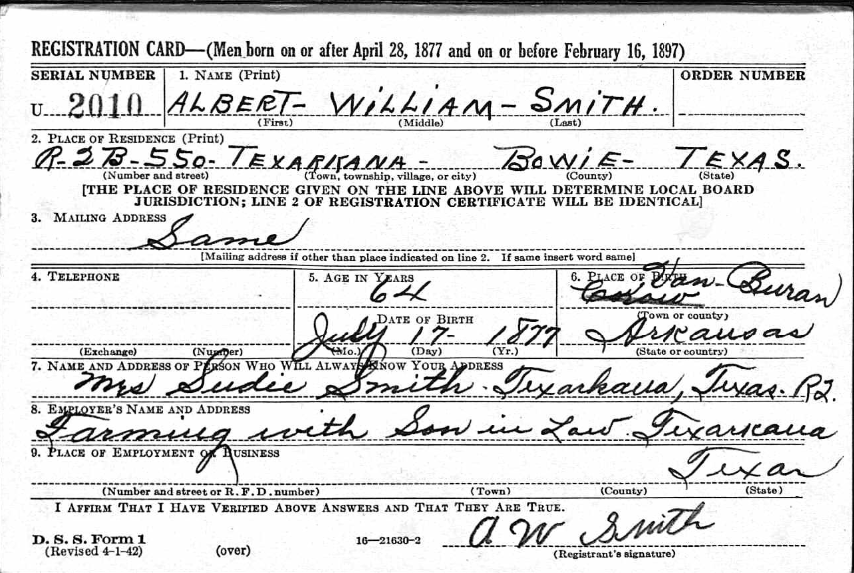 REGISTRATION CARD—(Men born on or after April 28, 1877 and on or before February 16, 1897)
SERIAL NUMBER 1. NAME (Print) ORDER NUMBER
U 2010 ALBERT- WILLIAM- SMITH.
(First) (Middle) (Last)
2. PLACE OF RESIDENCE (Print)
R-2B-550- TEXARKANA- BOWIE- TEXAS.
(Number and street) (Town, township, village, or city) (County) (State)
[THE PLACE OF RESIDENCE GIVEN ON THE LINE ABOVE WILL DETERMINE LOCAL BOARD
JURISDICTION; LINE 2 OF REGISTRATION CERTIFICATE WILL BE IDENTICAL]
3. MAILING ADDRESS
Same
[Mailing address if other than place indicated on line 2. If same insert word same]
4. TELEPHONE 5. AGE IN YEARS 6. PLACE OF BIRTH
64 Van-Buran
DATE OF BIRTH (Town or county)
July 17- 1877 Arkansas
(Exchange) (Number) (Mo.) (Day) (Yr.) (State or country)
7. NAME AND ADDRESS OF PERSON WHO WILL ALWAYS KNOW YOUR ADDRESS
Mrs Sudie Smith-Texarkana, Texas. R2.
8. EMPLOYER'S NAME AND ADDRESS
Farming with Son in Law-Texarkana
9. PLACE OF EMPLOYMENT OR BUSINESS
Texas
(Number and street or R. F. D. number) (Town) (County) (State)
I AFFIRM THAT I HAVE VERIFIED ABOVE ANSWERS AND THAT THEY ARE TRUE.
D. S. S. Form 1 A W Smith
(Revised 4-1-42) (over) 16—21630-2 (Registrant's signature)